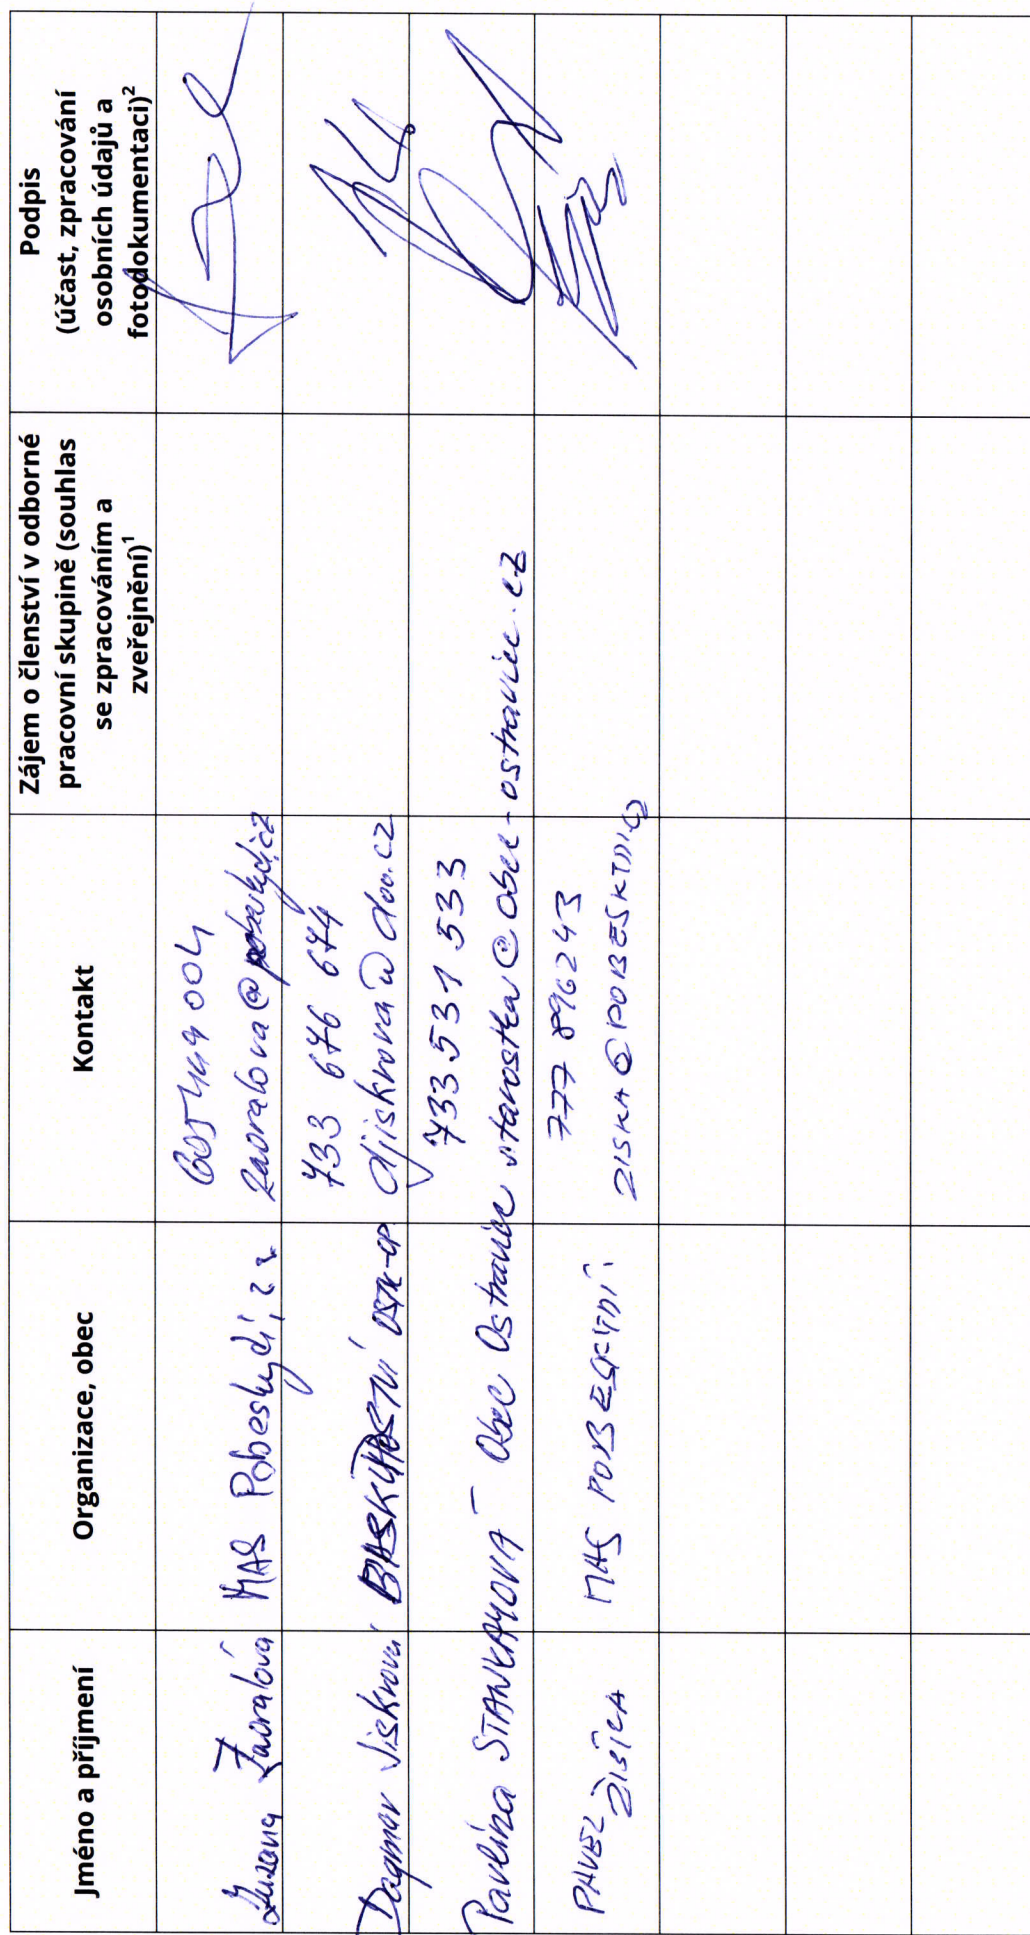 Jméno a příjmení
Organizace, obec
Kontakt
Zájem o členství v odborné
pracovní skupině (souhlas
se zpracováním a
zveřejnění)¹
Podpis
(účast, zpracování
osobních údajů a
fotodokumentaci)²
Zuzana Zaoralová
MAS Pobeskydí, z s
zaoralova@pobeskydi.cz
Dagmar Jiskrová
733 676 674
djiskrova@
Pavlína STANKAYOVÁ
Obec Ostravice
733 531 533
starostka@obec-ostravice.cz
PAVEL
ŽIŠKA
MAS POBESKYDÍ
777 896243
ZISKA@POBESKYDI.CZ